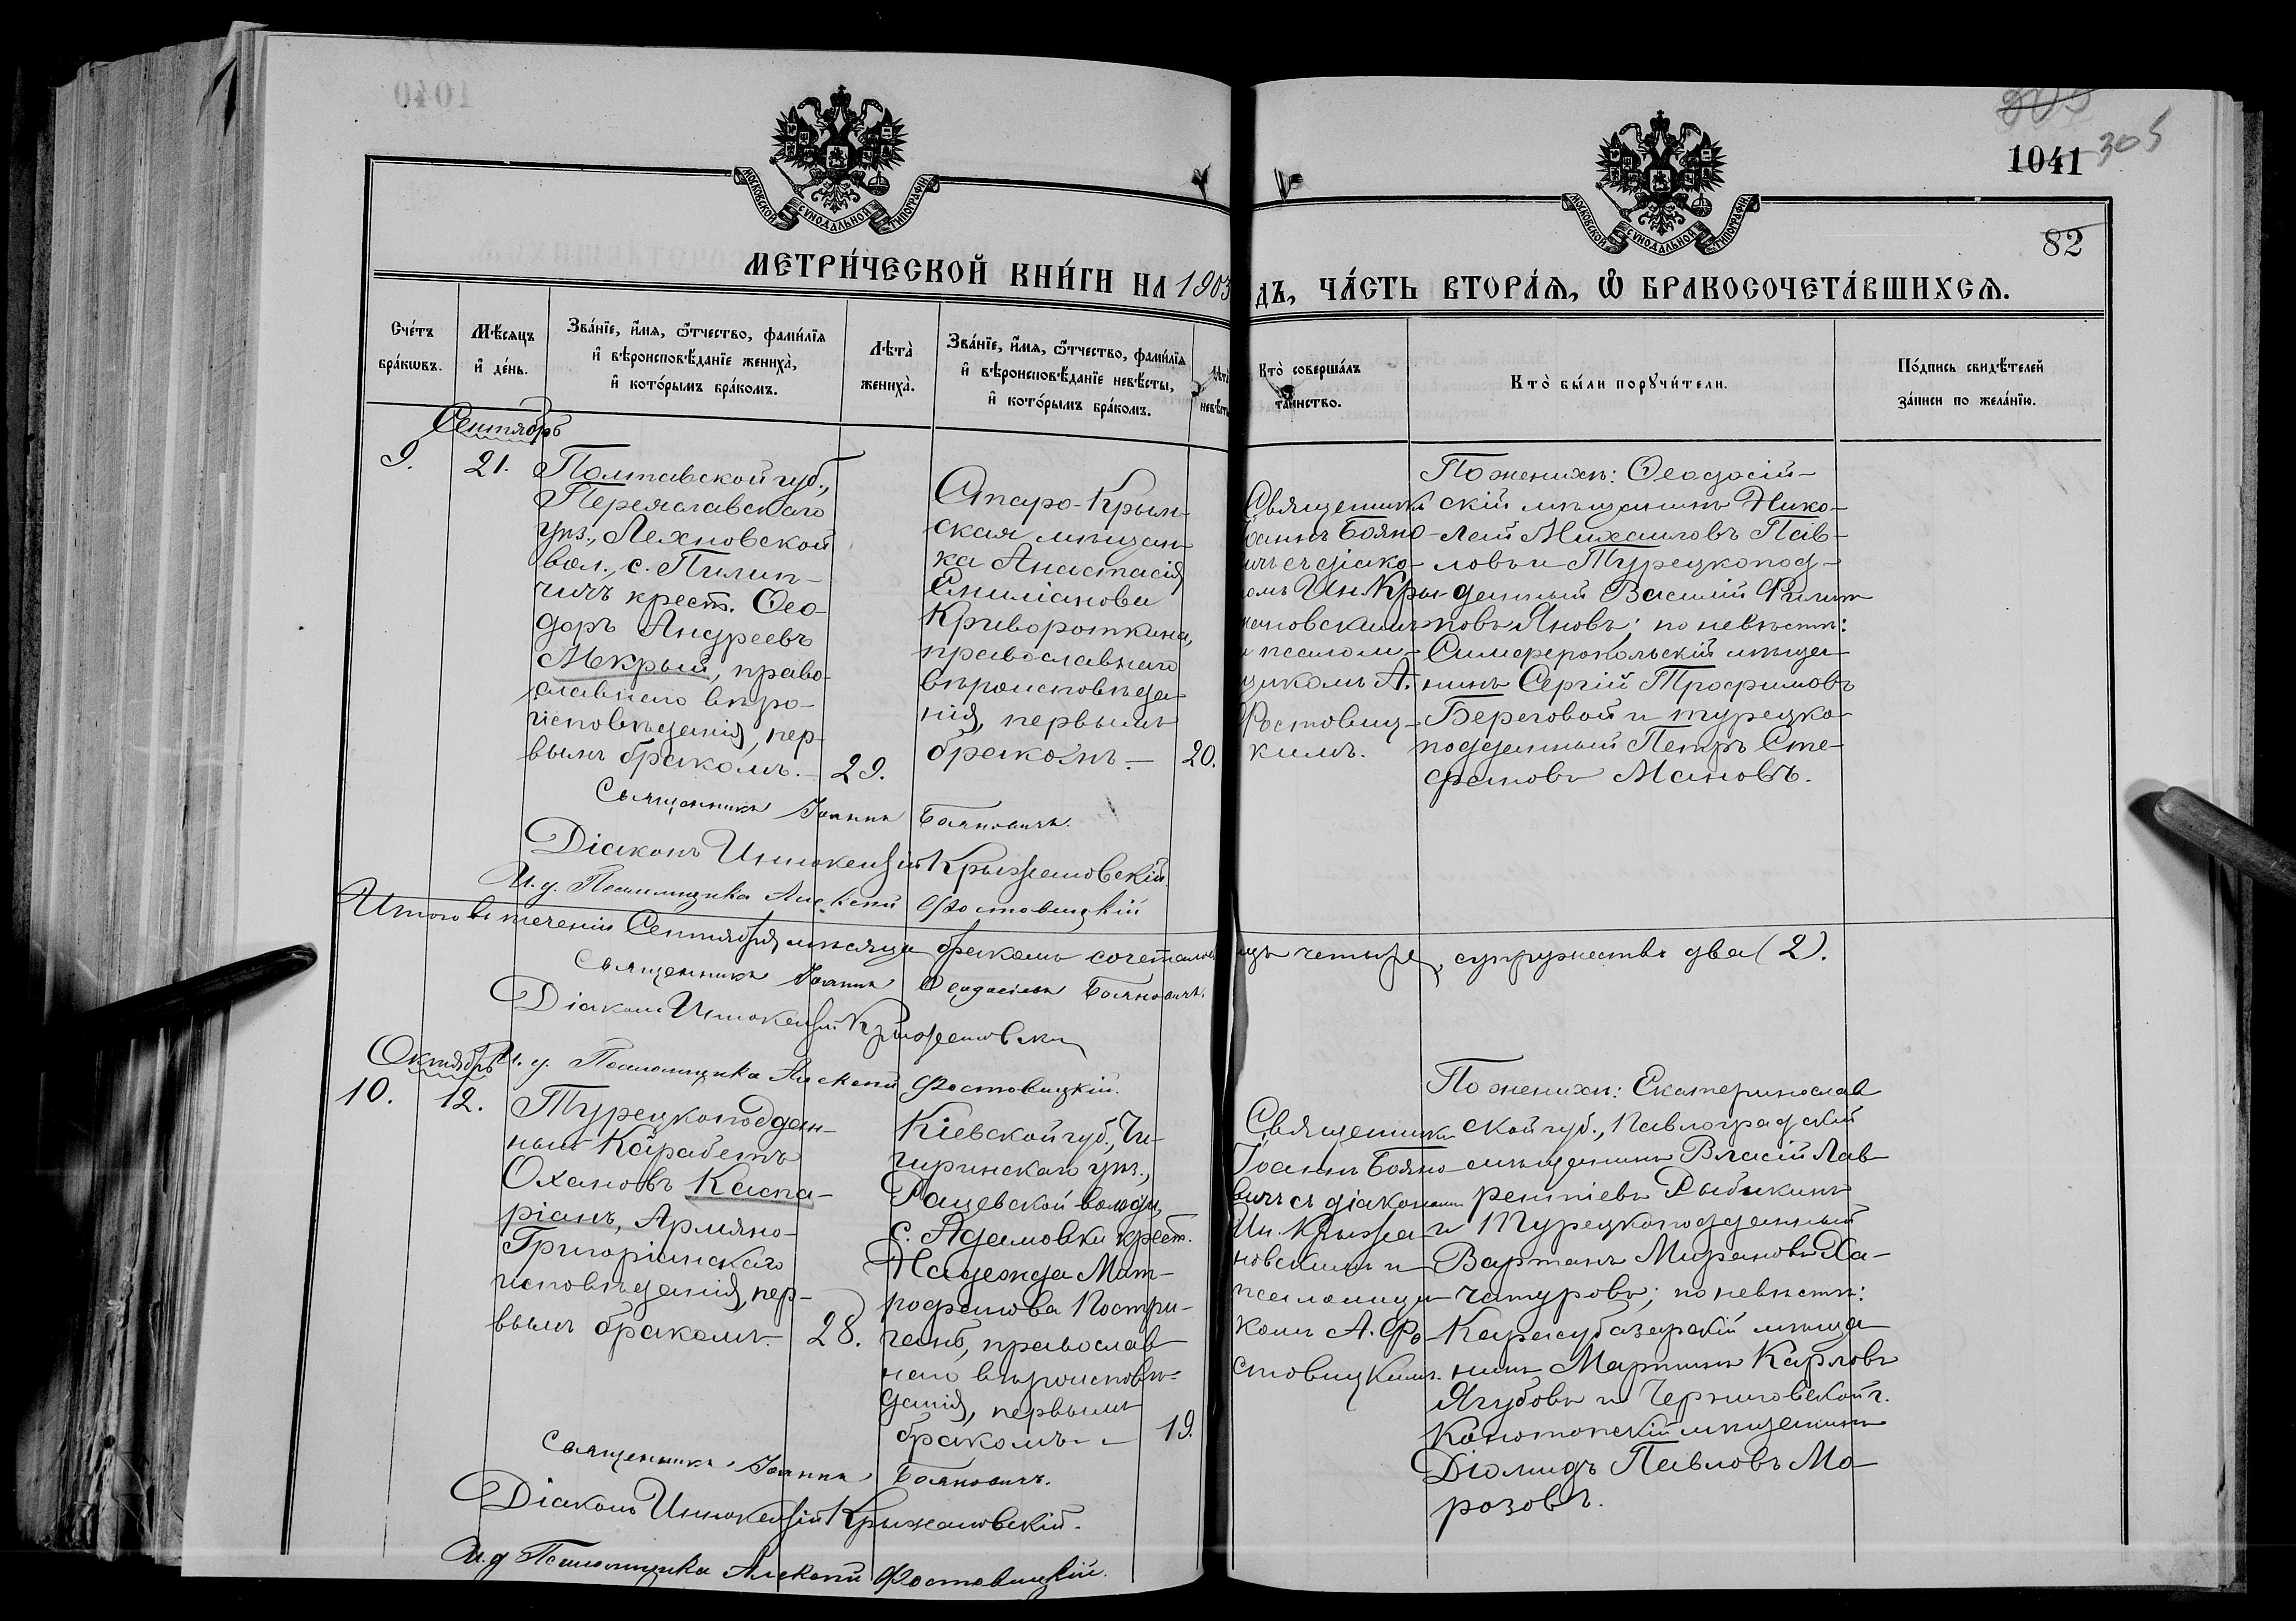 1040
305
1041
305
82
МОСКОВСКОЙ СѴНОДАЛЬНОЙ ТИПОГРАФІИ
МОСКОВСКОЙ СѴНОДАЛЬНОЙ ТИПОГРАФІИ
МЕТРИ́ЧЕСКОЙ КНИ́ГИ НА 1903
ДЪ, ЧА́СТЬ ВТОРА́Ѧ, Ѽ БРАКОСОЧЕТА́ВШИХСѦ.
Сче́тъ бра́кѡвъ.
Мѣ́сяцъ и҆ де́нь.
Зва́нїе, и҆́мѧ, ѻ҆́тчество, фами́лїѧ и҆ вѣроисповѣ́данїе жениха̀, и҆ кото́рымъ бра́комъ.
Лѣта̀ жениха̀.
Зва́нїе, и҆́мѧ, ѻ҆́тчество, фами́лїѧ и҆ вѣроисповѣ́данїе невѣ́сты, и҆ кото́рымъ бра́комъ.
Лѣта̀ невѣ́сты
Кто̀ соверша́лъ та́инство.
Кто̀ бы́ли порꙋчи́тели.
По́дпись свидѣ́телей за́писи по жела́нїю.
Сентябрь
9.
21.
Полтавской губ.,
Переяславскаго
уѣз., Лехновской
вол., с. Пилип-
чичъ крест. Ѳео-
доръ Андреевъ
Мокрый, право-
славнаго вѣро-
исповѣданія, пер-
вымъ бракомъ.
29.
Старо-Крым-
ская мѣщан-
ка Анастасія
Емиліанова
Кривороткина,
православнаго
вѣроисповѣда-
нія, первымъ
бракомъ.
20.
Священникъ
Іоаннъ Бояно-
вичъ съ діако-
номъ Ин. Кры-
жановскимъ
и псалом-
щикомъ А.
Фостовиц-
кимъ.
По женихѣ: Ѳеодосій-
скій мѣщанинъ Нико-
лай Михаиловъ Пав-
ловъ и Турецкопод-
данный Василій Филип-
повъ Яновъ; по невѣстѣ:
Симферопольскій мѣща-
нинъ Сергій Трофимовъ
Береговой и турецко-
подданный Петръ Сте-
фановъ Мановъ.
Священникъ Іоаннъ Бояновичъ.
Діаконъ Иннокентій Крыжановскій.
И. д. Псаломщика Алексѣй Фостовицкій
Итого въ теченіи Сентября мѣсяца бракомъ сочеталось
лицъ четыре, супружествъ два (2).
Священникъ Іоаннъ Ѳеодосіевъ Бояновичъ.
Діаконъ Иннокентій Крыжановскій
И. д. Псаломщика Алексѣй Фостовицкій.
Октябрь
10.
12.
Турецкоподдан-
ный Карабетъ
Охановъ Каспа-
ріанъ, Армяно-
Григоріанскаго
исповѣданія, пер-
вымъ бракомъ
28.
Кіевской губ., Чи-
гиринскаго уѣз.,
Рацевской волости,
с. Адамовки крест.
Надежда Мит-
рофанова Костри-
чанъ, православ-
наго вѣроисповѣ-
данія, первымъ
бракомъ
19.
Священникъ
Іоаннъ Бояно-
вичъ съ діакономъ
Ин. Крыжа-
новскимъ и
псаломщи-
комъ А. Фо-
стовицкимъ.
По женихѣ: Екатеринослав-
ской губ., Павлоградскій
мѣщанинъ Власій Лав-
рентіевъ Рыбикинъ
и Турецкоподданный
Вартанъ Мирановъ Ха-
чатуровъ; по невѣстѣ:
Карасубазарскій мѣща-
нинъ Мартинъ Карловъ
Ягубовъ и Черниговской г.
Конотопскій мѣщанинъ
Діомидъ Павловъ Мо-
розовъ.
Священникъ Іоаннъ Бояновичъ.
Діаконъ Иннокентій Крыжановскій.
И. д. Псаломщика Алексѣй Фостовицкій.